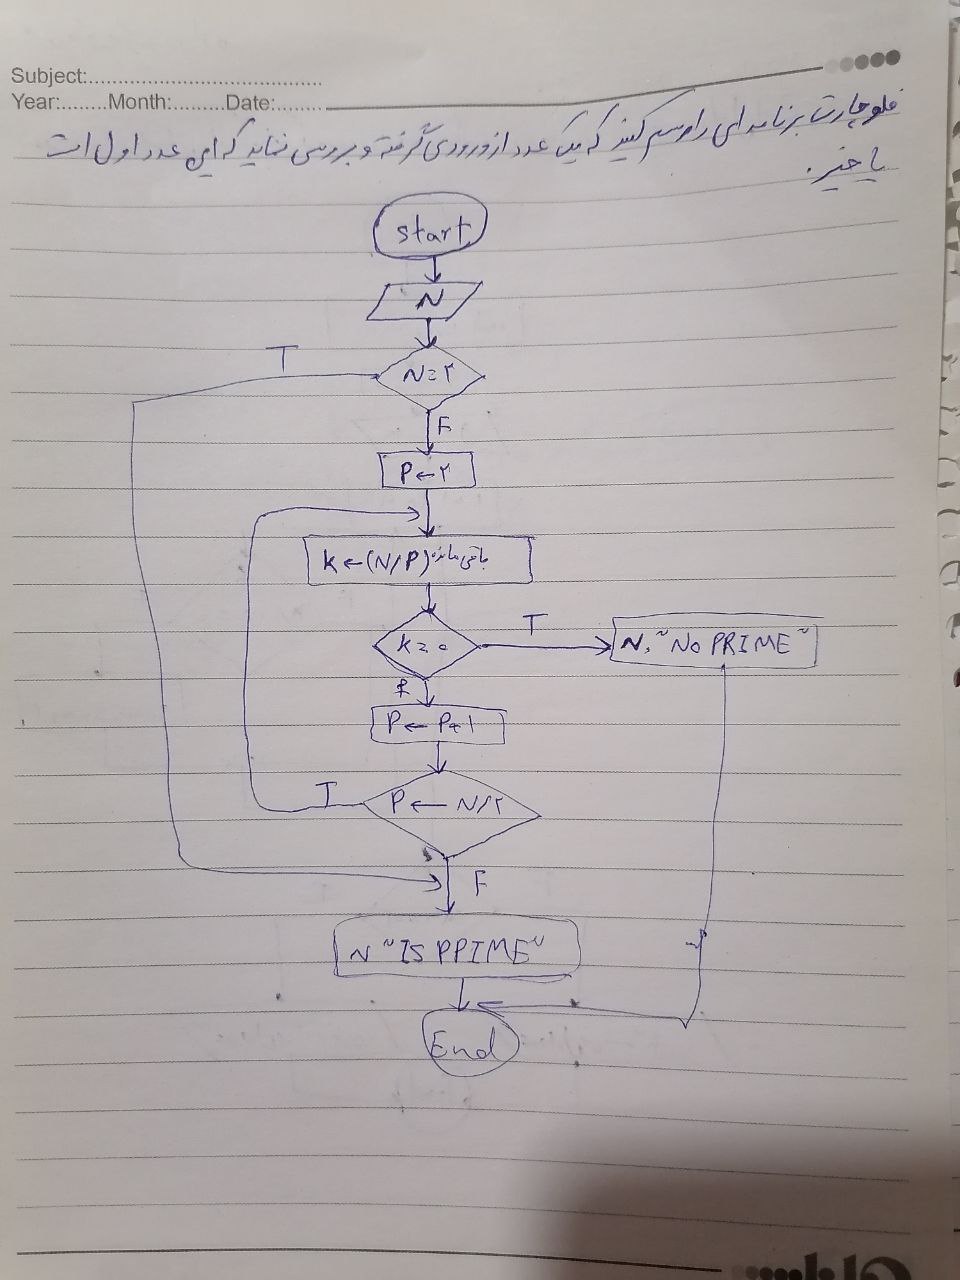 Subject:......................................
Year:........Month:.........Date:........
فلوچارت برنامه ای را رسم کنید که یک عدد از ورودی گرفته و بررسی نماید که این عدد اول است
یا خیر.
start
N
T
N=۲
F
P←۲
K←(N/P) باقی مانده
K=۰
T
N, "NO PRIME"
F
P← P+۱
T
P ← N/۲
F
N "IS PPIME"
End